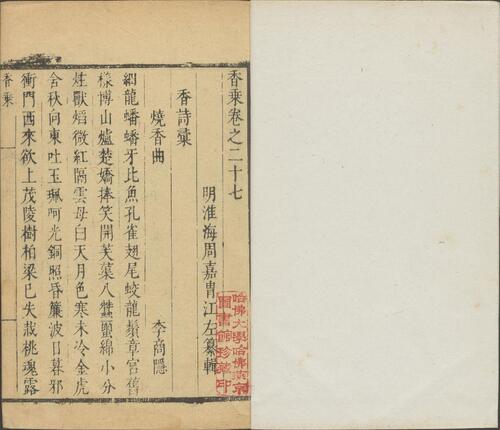 香乘卷之二十七
明淮海周嘉胄江左纂輯
香詩彚
燒香曲
李商隱
鈿龍蟠蟠牙比魚孔雀翅尾蛟龍鬚章宮舊
樣博山爐楚嬌捧笑開芙蕖八蠶繭綿小分
炷獸熖微紅隔雲母白天月色寒未冷金虎
含秋向東吐玉珮呵光銅照昏簾波日暮邪
衝門西來欲上茂陵樹柏梁已失栽桃魂露
香乘
哈佛大學哈佛燕京
圖書館珍藏印